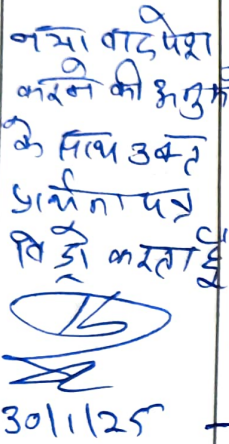 नया वाद पेश
करने की अनुम
के साथ उक्त
प्रार्थना पत्र
विड्रो करता हूँ
30/1/25